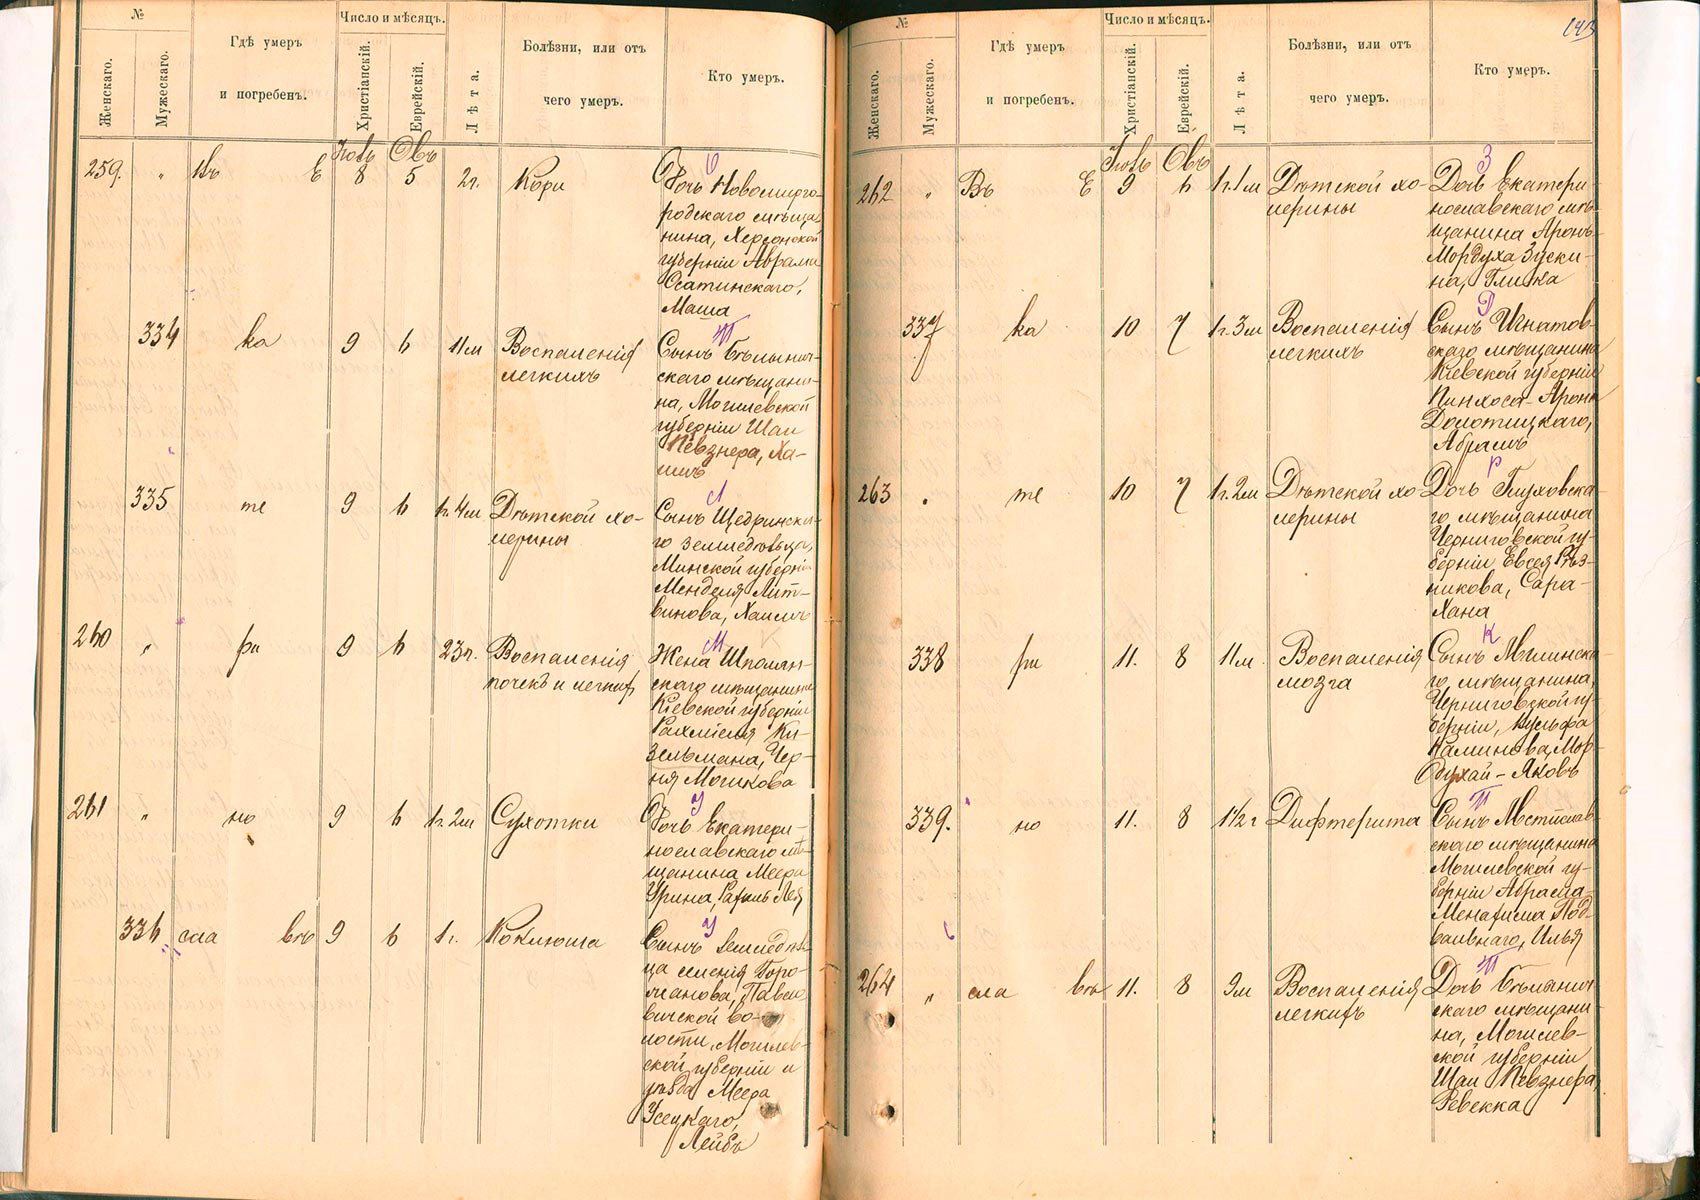 №
Число и мѣсяцъ.
Женскаго.
Мужескаго.
Гдѣ умеръ
и погребенъ.
Христіанскій.
Еврейскій.
Лѣта.
Болѣзни, или отъ
чего умеръ.
Кто умеръ.
259. " Въ Е 8 5 2 г. Кори
Дочь Новомирго-
родскаго мѣща-
нина, Херсонской
губерніи Аврама
Маша
334 ка 9 6 11 м Воспаленія
легкихъ
Сынъ Бѣлынич-
скаго мѣщани-
на, Могилевской
губерніи Шаи
Певзнера, Ха-
имъ
335 те 9 6 1 г. 4 м Дѣтской хо-
лерины
Сынъ Щедринска-
го земледѣльца,
Минской губерніи
Менделя Лит-
винова, Хаимъ
260 " ри 9 6 23 г. Воспаленія
почекъ и легких
Жена Шполян-
скаго мѣщанина
Кіевской губерніи
Рахміеля Ки-
зельмана, Чер-
ня Мошкова
261 " но 9 6 1 г. 2 м Сухотки
Дочь Екатери-
нославскаго мѣ-
щанина Меера
Урина, Рахиль Лея
336 сла вѣ 9 6 1 г. Коклюша
Сынъ земледѣль-
ца селенія Горо-
Могилев-
ской губерніи и
уѣзда Меера
Усецкаго,
Лейбъ
143
№
Число и мѣсяцъ.
Женскаго.
Мужескаго.
Гдѣ умеръ
и погребенъ.
Христіанскій.
Еврейскій.
Лѣта.
Болѣзни, или отъ
чего умеръ.
Кто умеръ.
262 " Въ Е 9 6 1 г. 1 м Дѣтской хо-
лерины
Дочь Екатери-
нославскаго мѣ-
щанина Аронъ-
Мордуха Зуски-
на, Глика
337 ка 10 7 1 г. 3 м Воспаленія
легкихъ
Сынъ Игнатов-
скаго мѣщанина
Кіевской губерніи
Пинхоса-Арона
Долотицкаго,
Абрамъ
263 " те 10 7 1 г. 2 м Дѣтской хо-
лерины
Дочь Глуховска-
го мѣщанина
Черниговской гу-
берніи Евсея Рѣз-
никова, Сара-
Хана
338 ри 11. 8 11 м. Воспаленія
мозга
Сынъ Мглинска-
го мѣщанина,
Черниговской гу-
берніи, Вульфа
Каминова, Мор-
духай-Яковъ
339. но 11. 8 1 1/2 г Дифтерита
Сынъ Мстислав-
скаго мѣщанина
Могилевской гу-
берніи Абрама-
Менахима Под-
вальнаго, Илья
264 " сла вѣ 11. 8 9 м Воспаленія
легкихъ
Дочь Бѣлынич-
скаго мѣщани-
на, Могилев-
ской губерніи
Шаи Певзнера,
Ревекка